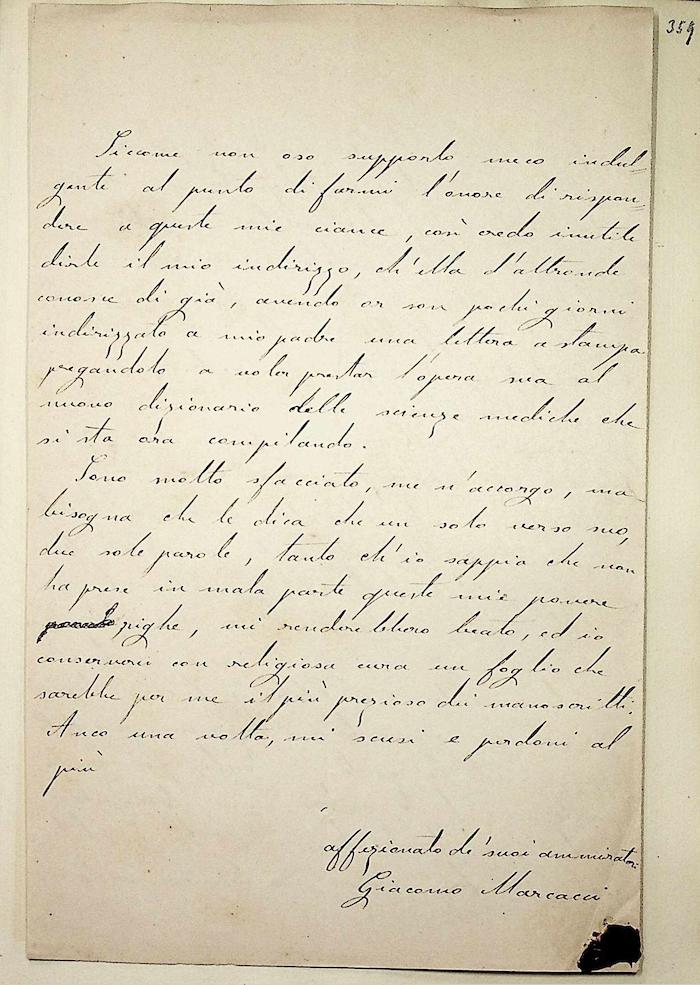 359
Siccome non oso supporlo meco indul-
gente al punto di farmi l'onore di rispon-
dere a queste mie ciance, così credo inutile
dirle il mio indirizzo, ch'ella d'altronde
conosce di già, avendo or son pochi giorni
indirizzato a mio padre una lettera a stampa
pregandolo a voler prestar l'opera sua al
nuovo dizionario delle scienze mediche che
si sta ora compilando.
Sono molto sfacciato, me n'accorgo, ma
bisogna che le dica che un solo verso suo,
due sole parole, tanto ch'io sappia che non
ha prese in mala parte queste mie povere
righe, mi renderebbero beato, ed io
conserverei con religiosa cura un foglio che
sarebbe per me il più prezioso dei manoscritti.
Anco una volta, mi scusi e perdoni al
più
affezionato de' suoi ammiratori
Giacomo Marcacci